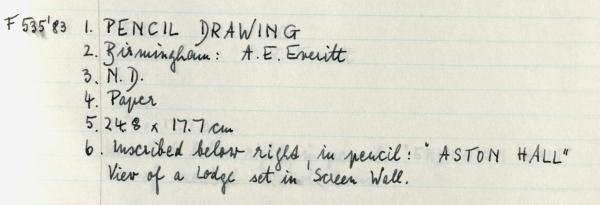 F 535'83 1. PENCIL DRAWING
2. Birmingham: A.E. Everitt
3. N.D.
4. Paper
5. 24.8 x 17.7 cm
6. Inscribed below right, in pencil: "ASTON HALL"
View of a Lodge set in Screen Wall.